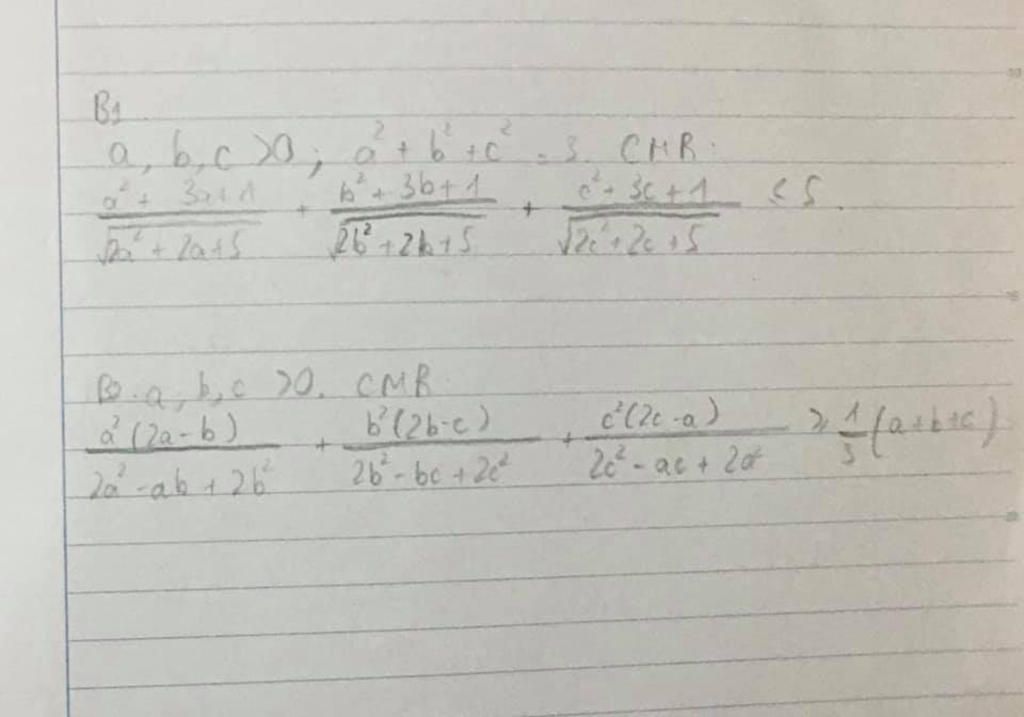 B1
a, b, c >0 ; a² + b² + c² = 3. CMR:
(a² + 3a + 1)/√(2a² + 2a + 5) + (b² + 3b + 1)/√(2b² + 2b + 5) + (c² + 3c + 1)/√(2c² + 2c + 5) ≤ 5.
B2. a, b, c >0. CMR
a²(2a - b)/(2a² - ab + 2b²) + b²(2b - c)/(2b² - bc + 2c²) + c²(2c - a)/(2c² - ac + 2a²) ≥ 1/3 (a + b + c)